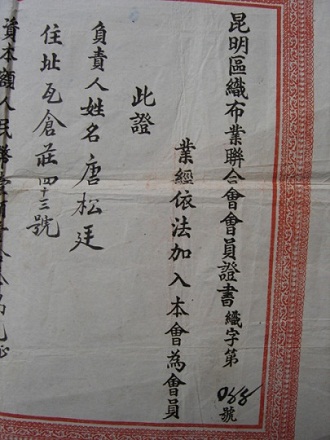 昆明區織布業聯合會會員證書 織字第 號
業經依法加入本會為會員
此證
負責人姓名唐松廷
住址瓦倉莊四十三號
資本額人民幣